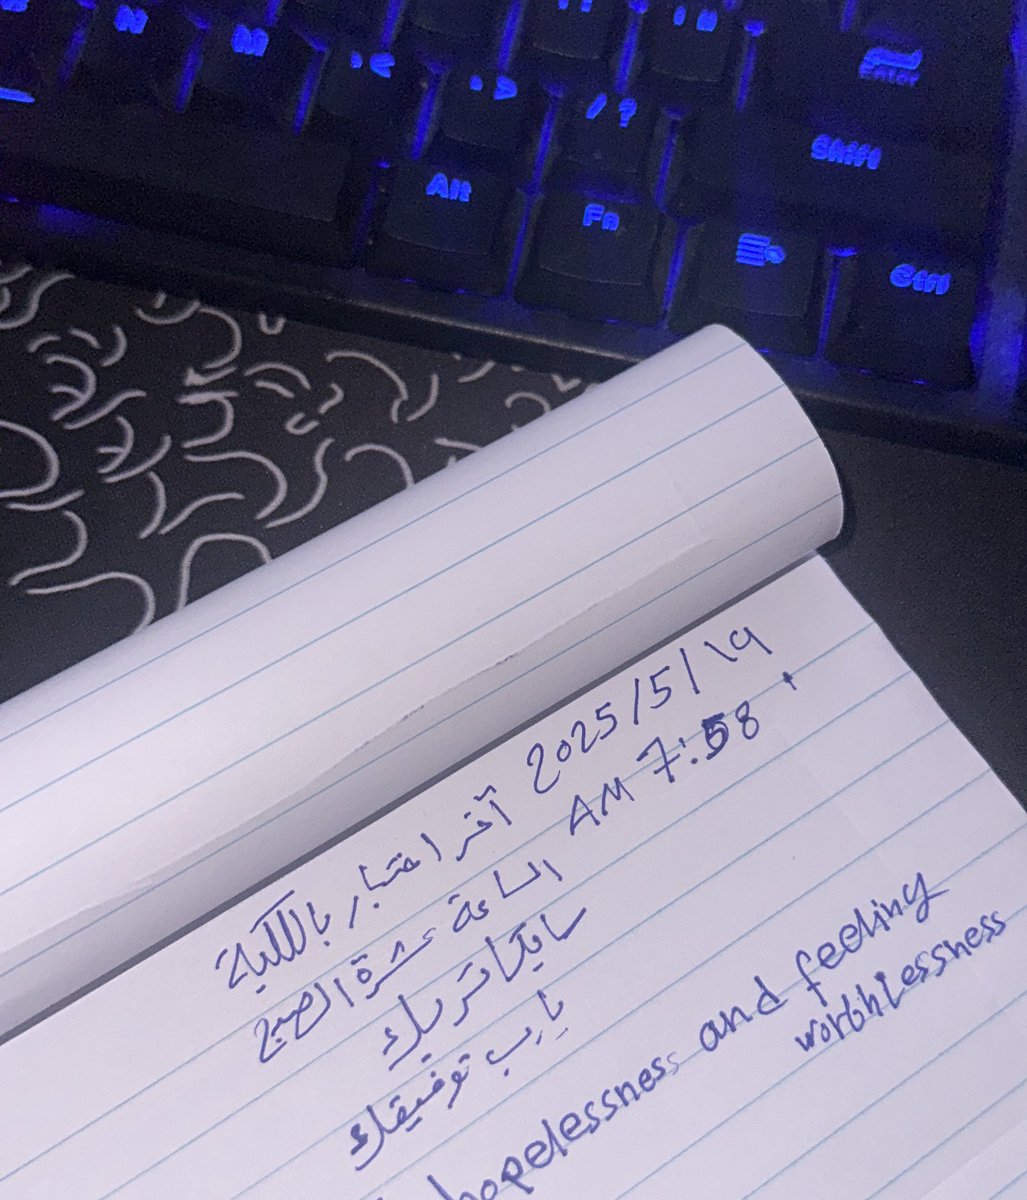 N M , < . > / ? Enter
Shift
Alt Fn Ctrl
آخر اختبار بالكلية 2025/5/١٩
AM 7:58
الساعة عشرة الصبح
سايكاتريك
يا رب توفيقك
hopelessness and feeling
worthlessness